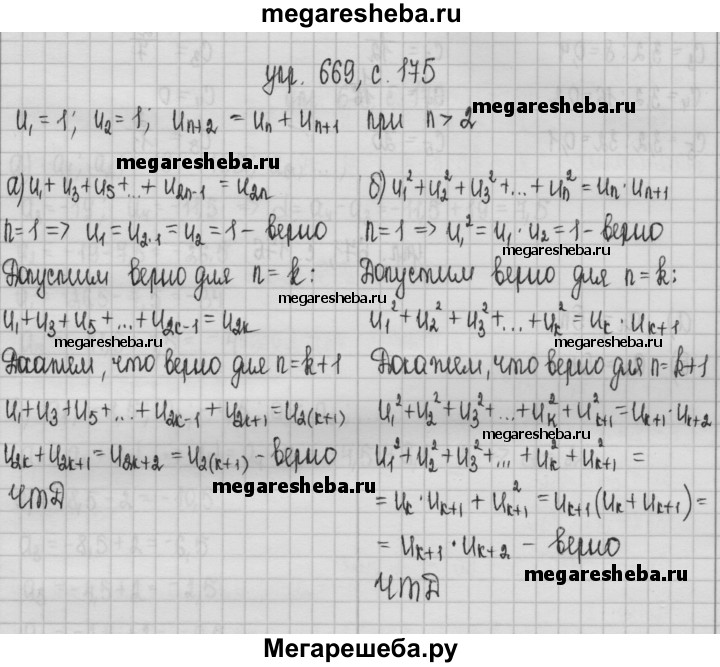 megaresheba.ru
упр. 669, с. 175
u₁ = 1; u₂ = 1; uₙ₊₂ = uₙ + uₙ₊₁ при n > 2
megaresheba.ru
megaresheba.ru
а) u₁ + u₃ + u₅ + ... + u₂ₙ₋₁ = u₂ₙ
n = 1 => u₁ = u₂.₁ = u₂ = 1 - верно
Допустим верно для n = k:
u₁ + u₃ + u₅ + ... + u₂ₖ₋₁ = u₂ₖ
Докажем, что верно для n = k+1
u₁ + u₃ + u₅ + ... + u₂ₖ₋₁ + u₂ₖ₊₁ = u₂₍ₖ₊₁₎
u₂ₖ + u₂ₖ₊₁ = u₂ₖ₊₂ = u₂₍ₖ₊₁₎ - верно
ЧТД
б) u₁² + u₂² + u₃² + ... + uₙ² = uₙ · uₙ₊₁
n = 1 => u₁² = u₁ · u₂ = 1 - верно
megaresheba.ru
Допустим верно для n = k:
megaresheba.ru
u₁² + u₂² + u₃² + ... + uₖ² = uₖ · uₖ₊₁
megaresheba.ru
Докажем, что верно для n = k+1
u₁² + u₂² + u₃² + ... + uₖ² + uₖ₊₁² = uₖ₊₁ · uₖ₊₂
megaresheba.ru
u₁² + u₂² + u₃² + ... + uₖ² + uₖ₊₁² =
megaresheba.ru
= uₖ · uₖ₊₁ + uₖ₊₁² = uₖ₊₁(uₖ + uₖ₊₁) =
= uₖ₊₁ · uₖ₊₂ - верно
megaresheba.ru
ЧТД
Мегарешеба.ру